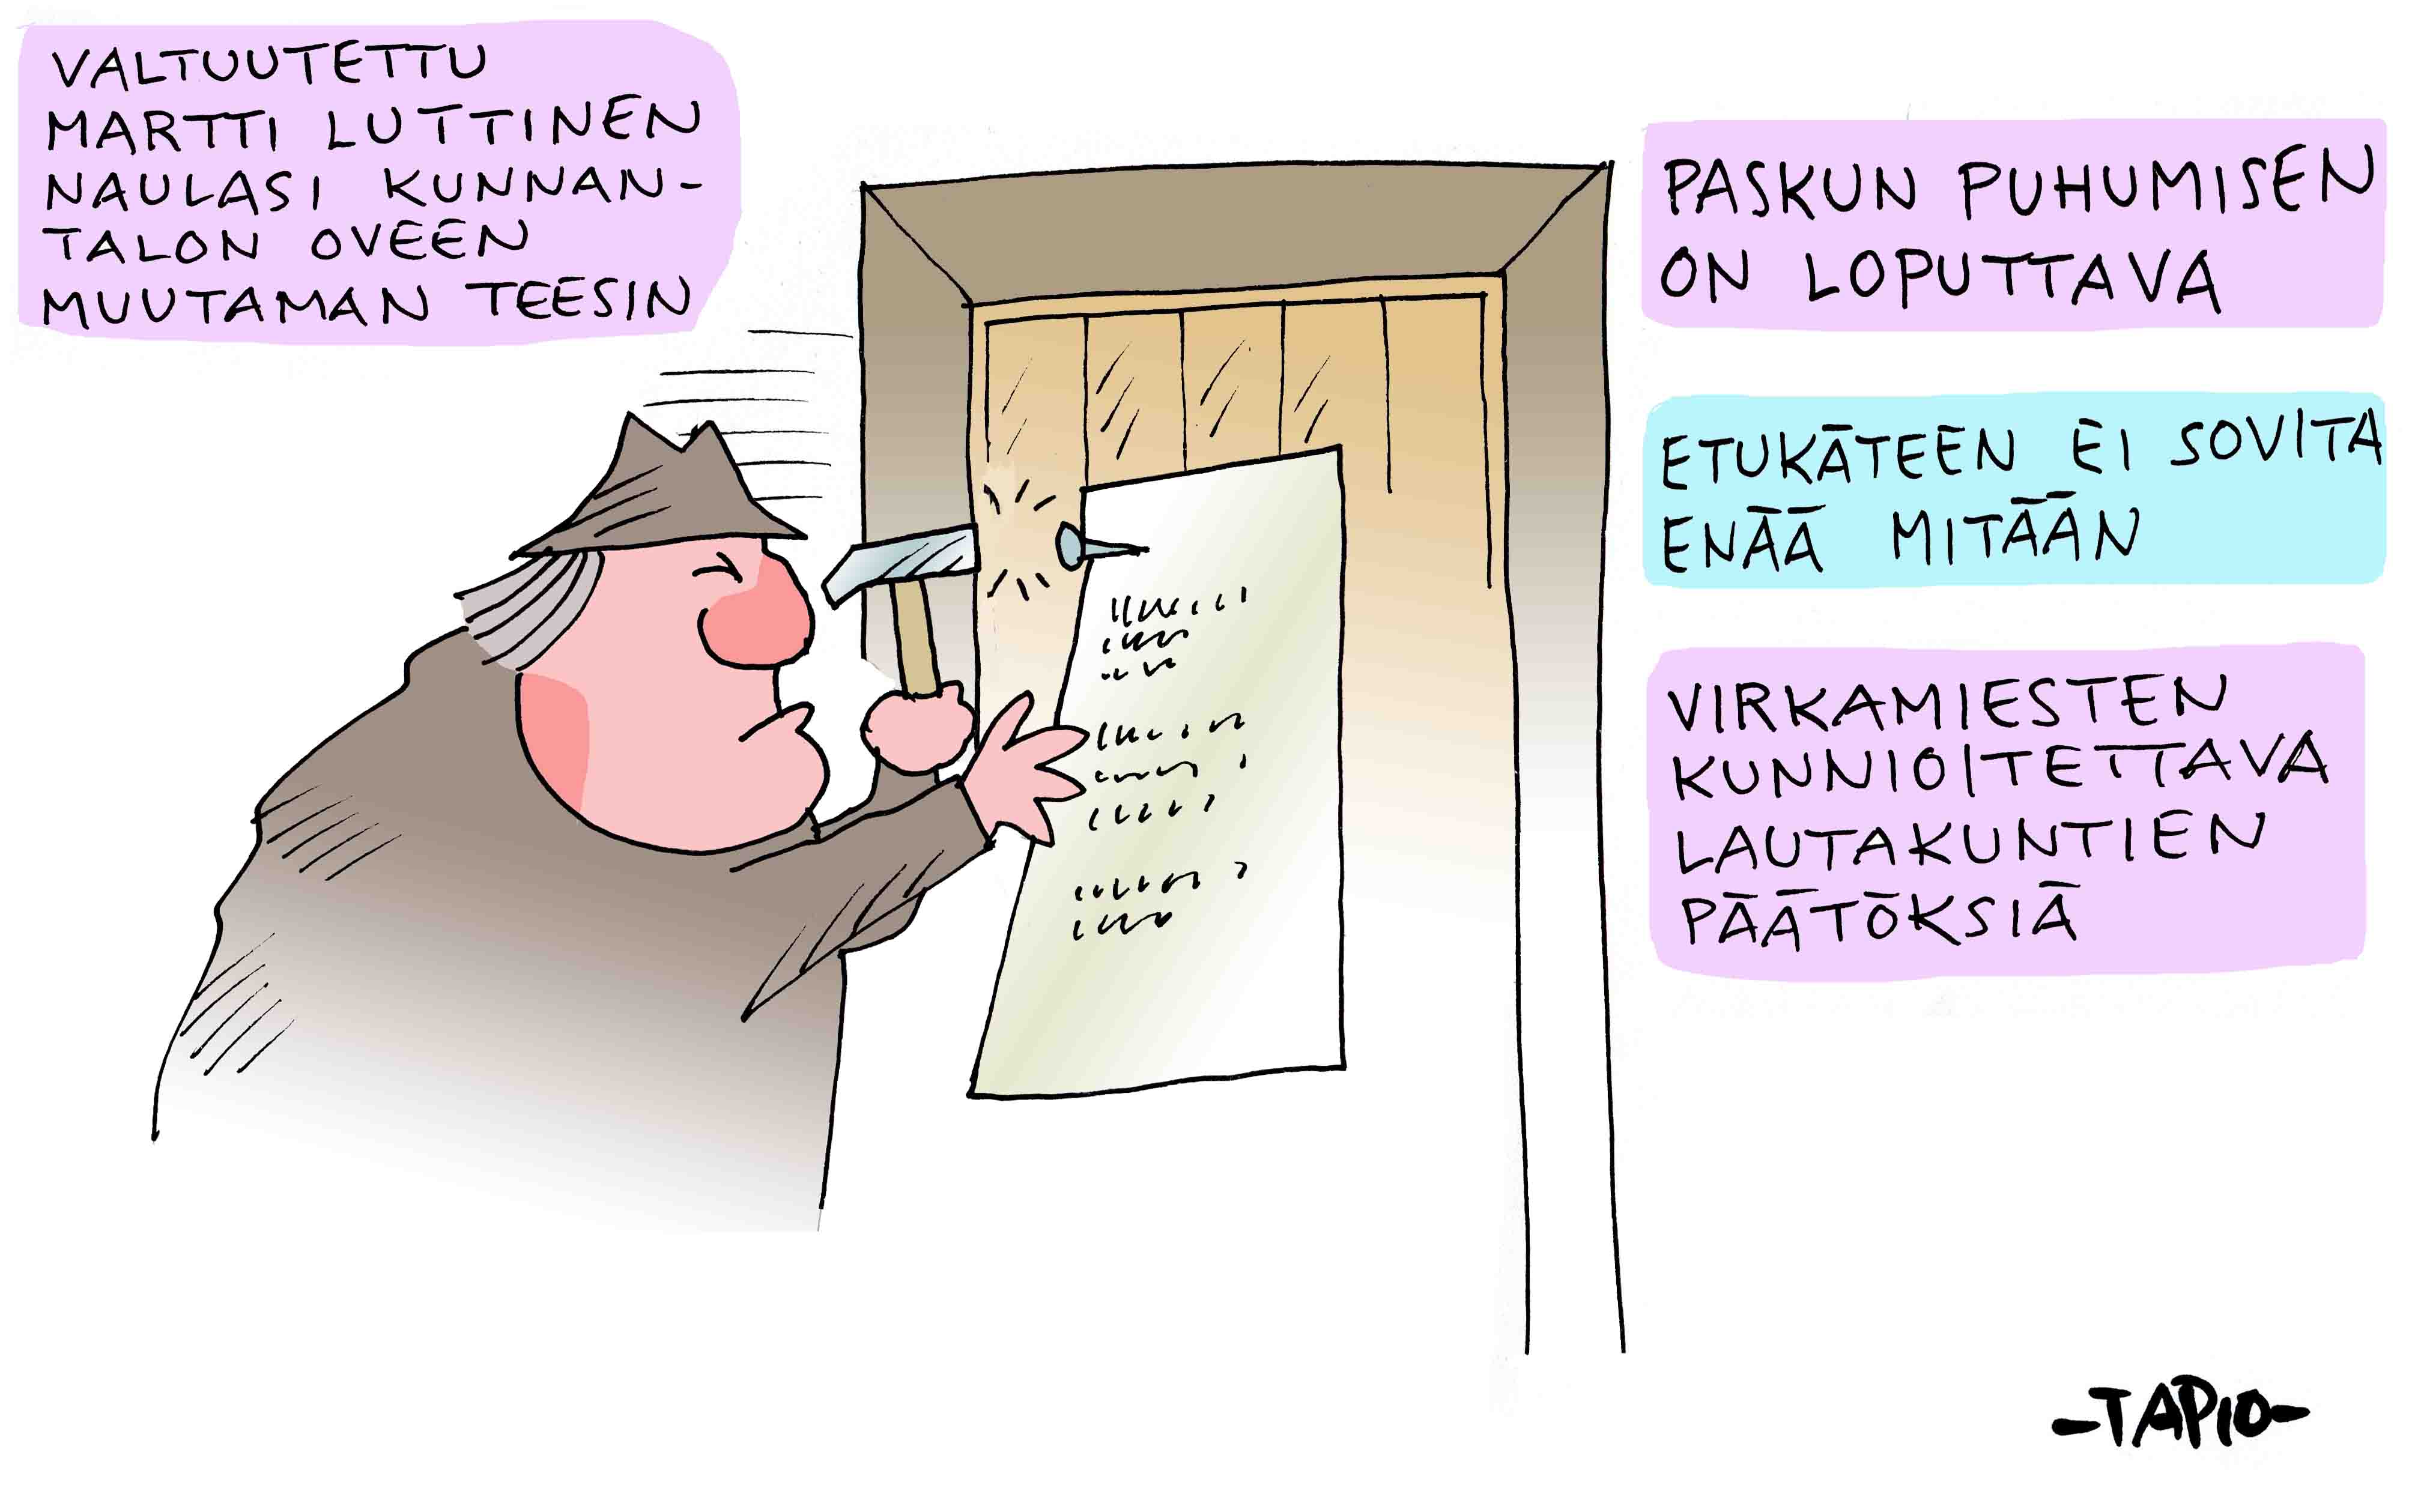 VALTUUTETTU
MARTTI LUTTINEN
NAULASI KUNNAN-
TALON OVEEN
MUUTAMAN TEESIN
PASKUN PUHUMISEN
ON LOPUTTAVA
ETUKÄTEEN EI SOVITA
ENÄÄ MITÄÄN
VIRKAMIESTEN
KUNNIOITETTAVA
LAUTAKUNTIEN
PÄÄTÖKSIÄ
-TAPIO-